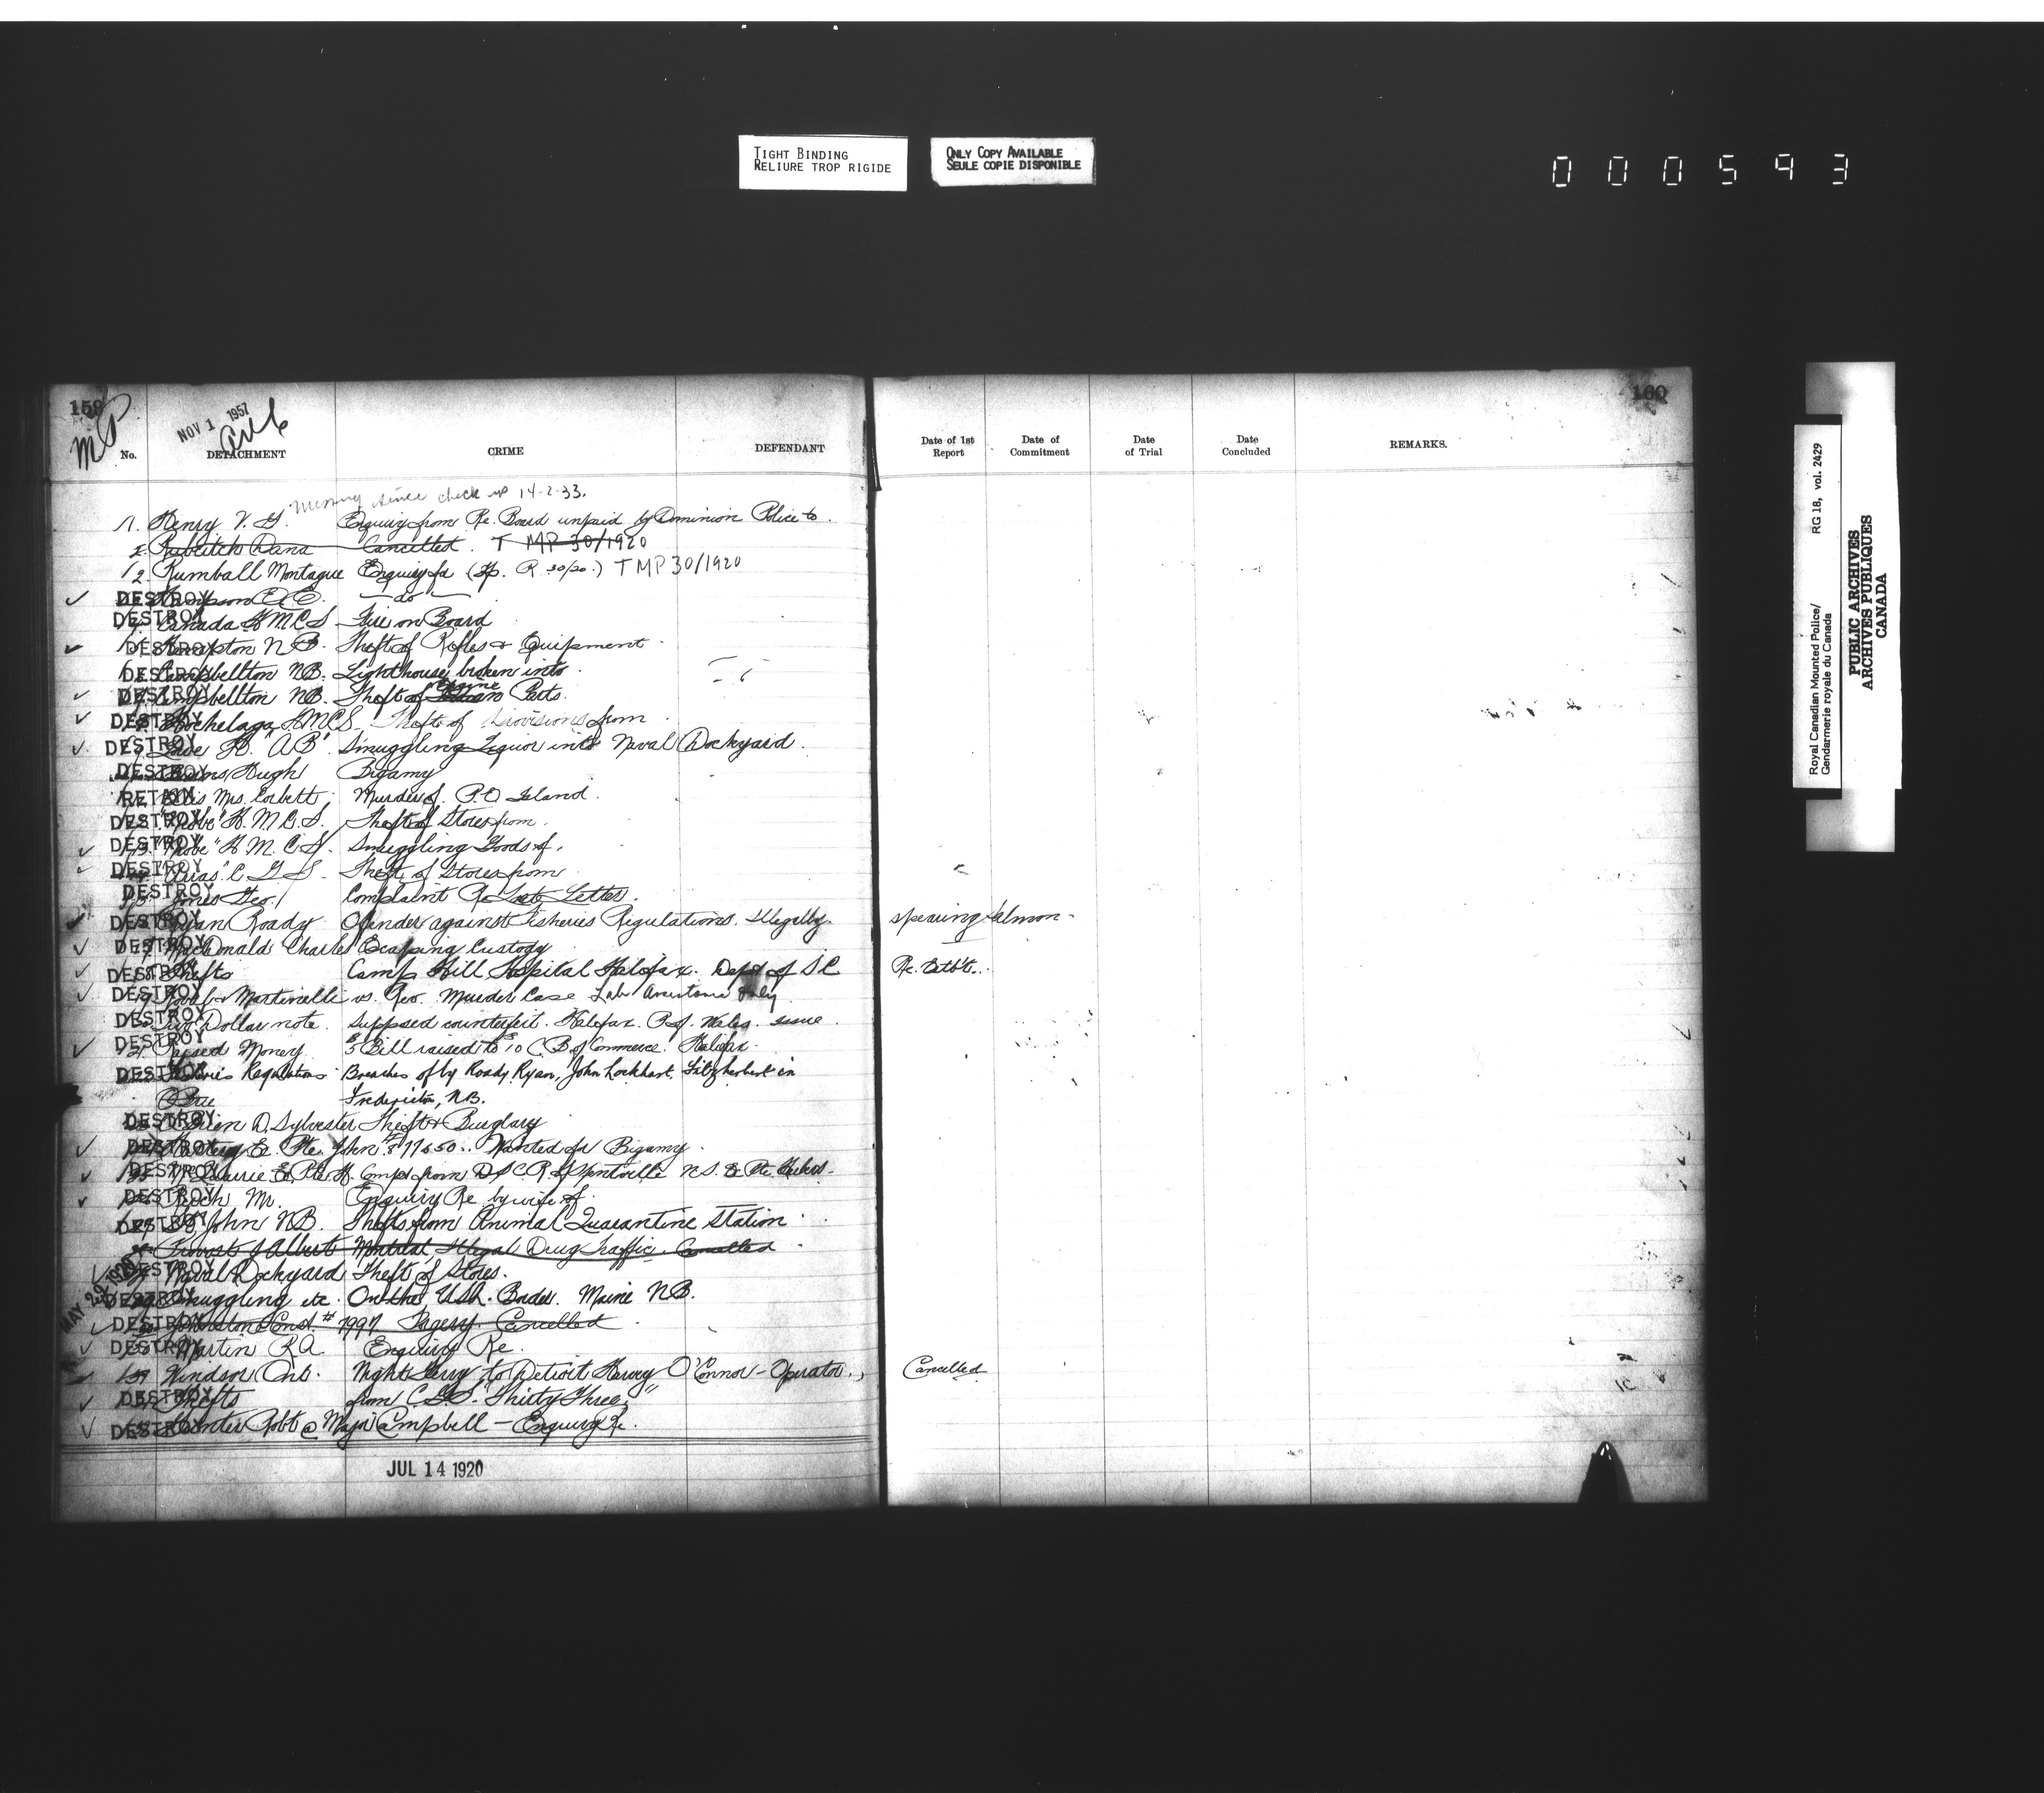 TIGHT BINDING
RELIURE TROP RIGIDE
ONLY COPY AVAILABLE
SEULE COPIE DISPONIBLE
000593
159
160
MP
NOV 1 1957
No. DETACHMENT CRIME DEFENDANT Date of 1st Report Date of Commitment Date of Trial Date Concluded REMARKS.
Missing since check up 14-2-33.
1. Henry V. G. Enquiry from Re. Board unpaid by Dominion Police to.
2. Dana Cancelled. T MP 30/1920
2. Rumball Montague Enquiry for (Tp. R. 30/20.) T MP 30/1920
DESTROY E. C. — do —
DESTROY Canada HMCS Fire on Board
DESTROY Hampton N.B. Theft of Rifles & Equipment
DESTROY Campbellton NB. Lighthouse broken into
DESTROY Campbellton NB. Theft of Engine Parts.
DESTROY Hochelaga HMCS. Theft of Provisions from
DESTROY "AB". Smuggling Liquor into Naval Dockyard.
DESTROY Hugh Bigamy
RETAIN Mrs. Corbett Murder of. P.O Island.
DESTROY H.M.C.S. Theft of Stores from.
DESTROY H.M.C.S. Smuggling Goods of.
DESTROY C G S. Theft of Stores from
DESTROY Jones Geo. Complaint Re Lost Letter.
DESTROY Ryan Roady Offender against Fisheries Regulations. Illegally spearing salmon-
DESTROY MacDonald Charles Escaping Custody
DESTROY 18. Thefts Camp Hill Hospital Halifax. Dept of SC Re. Estb't..
DESTROY 19 & Martinelli vs. Murder Case Lab only
DESTROY Two Dollar note. Supposed counterfeit. Halifax. P. of. Wales. issue.
DESTROY 21 Raised Money $5 Bill raised to $10 C. B. of Commerce. Halifax.
DESTROY Regulations Breaches of by Roady Ryan, John Lockhart, Fitzherbert in
Fredericton, N.B.
DESTROY D. Sylvester Theft & Burglary
DESTROY Ex. Pte. John # 877650.. Wanted for Bigamy.
DESTROY Ex Pte. H. Compl from DSCR of Kentville N.S. Ex Pte.
DESTROY Mr. Enquiry Re by wife of.
DESTROY St. John NB. Thefts from Animal Quarantine Station
Provost J Albert Montreal Illegal Drug Traffic. Cancelled
DESTROY Naval Dockyard Theft of Stores.
MAY 29 1920
DESTROY Smuggling etc. On the USA. Border. Maine NB.
DESTROY Johnston Const. # 7997 Forgery. Cancelled
DESTROY Martin R.A. Enquiry Re.
Windsor Ont. Night Ferry to Detroit Harvey O'Connor - Operator., Cancelled
DESTROY Thefts from C.G.S. "Thirty Three"
DESTROY Robt @ Major Campbell — Enquiry Re.
JUL 14 1920
Royal Canadian Mounted Police/
Gendarmerie royale du Canada
RG 18, vol. 2429
PUBLIC ARCHIVES
ARCHIVES PUBLIQUES
CANADA